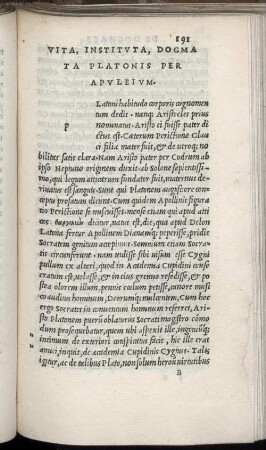 191
VITA, INSTITVTA, DOGMA
TA PLATONIS PER
APVLEIVM.
Latoni habitudo corporis cognomen
tum dedit. nanq; Aristocles prius
p nominatus. Aristo ei fuisse pater di
ctus est. Cæterum Perictione Glau
ci filia mater fuit, & de utroq; no
bilitas satis clara. Nam Aristo pater per Codrum ab
ipso Neptuno originem duxit. ab Solone sapientissi
mo, qui legum atticarum fundator fuit, maternus de
riuatus est sanguis. Sunt qui Platonem augustiore conce
ptu prosatum dicunt. Cum quidem Apollinis figura
tio Perictione se miscuisset. mense etiam qui apud atti
cos dicitur, natus est, die, qua apud Delon
Latona fertur Apollinem Dianamq; peperisse, pridie
Socratem genitum accepimus. Somnium etiam Socra
tis circunfertur. nam uidisse sibi uisus est Cygni
pullum ex altari, quod in Academia Cupidini conse
cratum est, uolasse, & in eius gremio resedisse, & po
stea olorem illum, pennis cælum petisse, canore musi
co auditus hominum, Deorumq; mulcentem. Cum hoc
ergo Socrates in conuentum hominum referret, Ari
sto Platonem puerum oblaturus Socrati magistro cōmo
dum prosequebatur, quem ubi aspexit ille, ingeniumq;
intimum de exteriori conspicatus facie, hic ille erat
amici, inquit, de academia Cupidinis Cygnus. Talis
igitur, ac de talibus Plato, non solum heroū uirtutibus
B